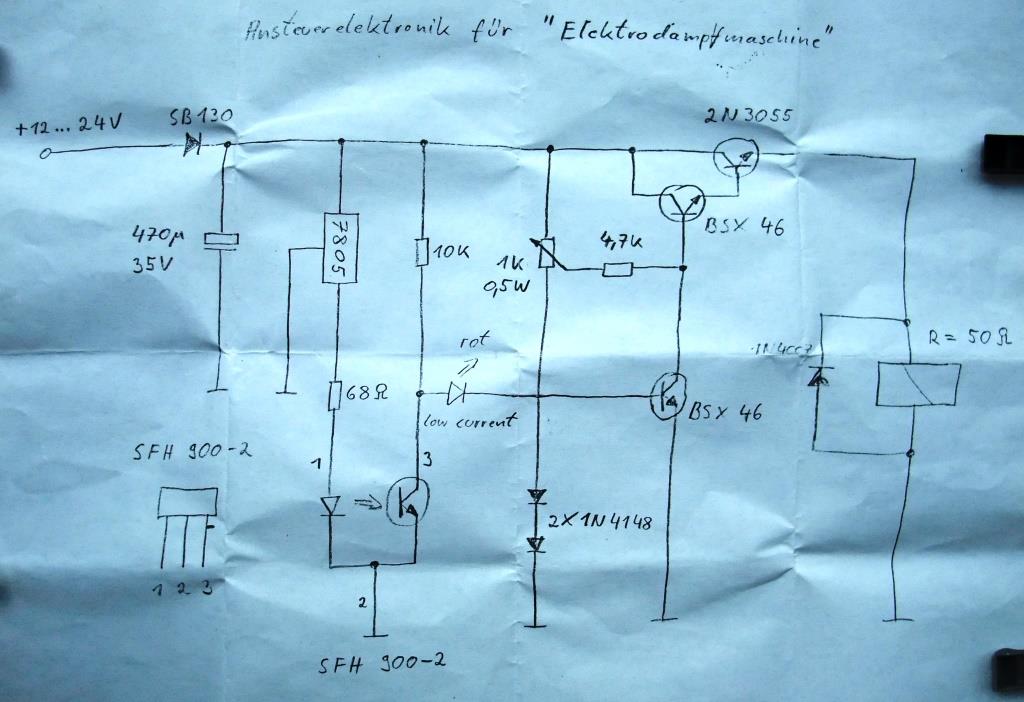 Ansteuerelektronik für "Elektrodampfmaschine"
+12...24V
SB130
2N3055
470µ
35V
7805
10K
1K
0,5W
4,7K
BSX 46
rot
low current
68Ω
BSX 46
1N4007
R = 50Ω
SFH 900-2
1
3
2X1N4148
1 2 3
2
SFH 900-2